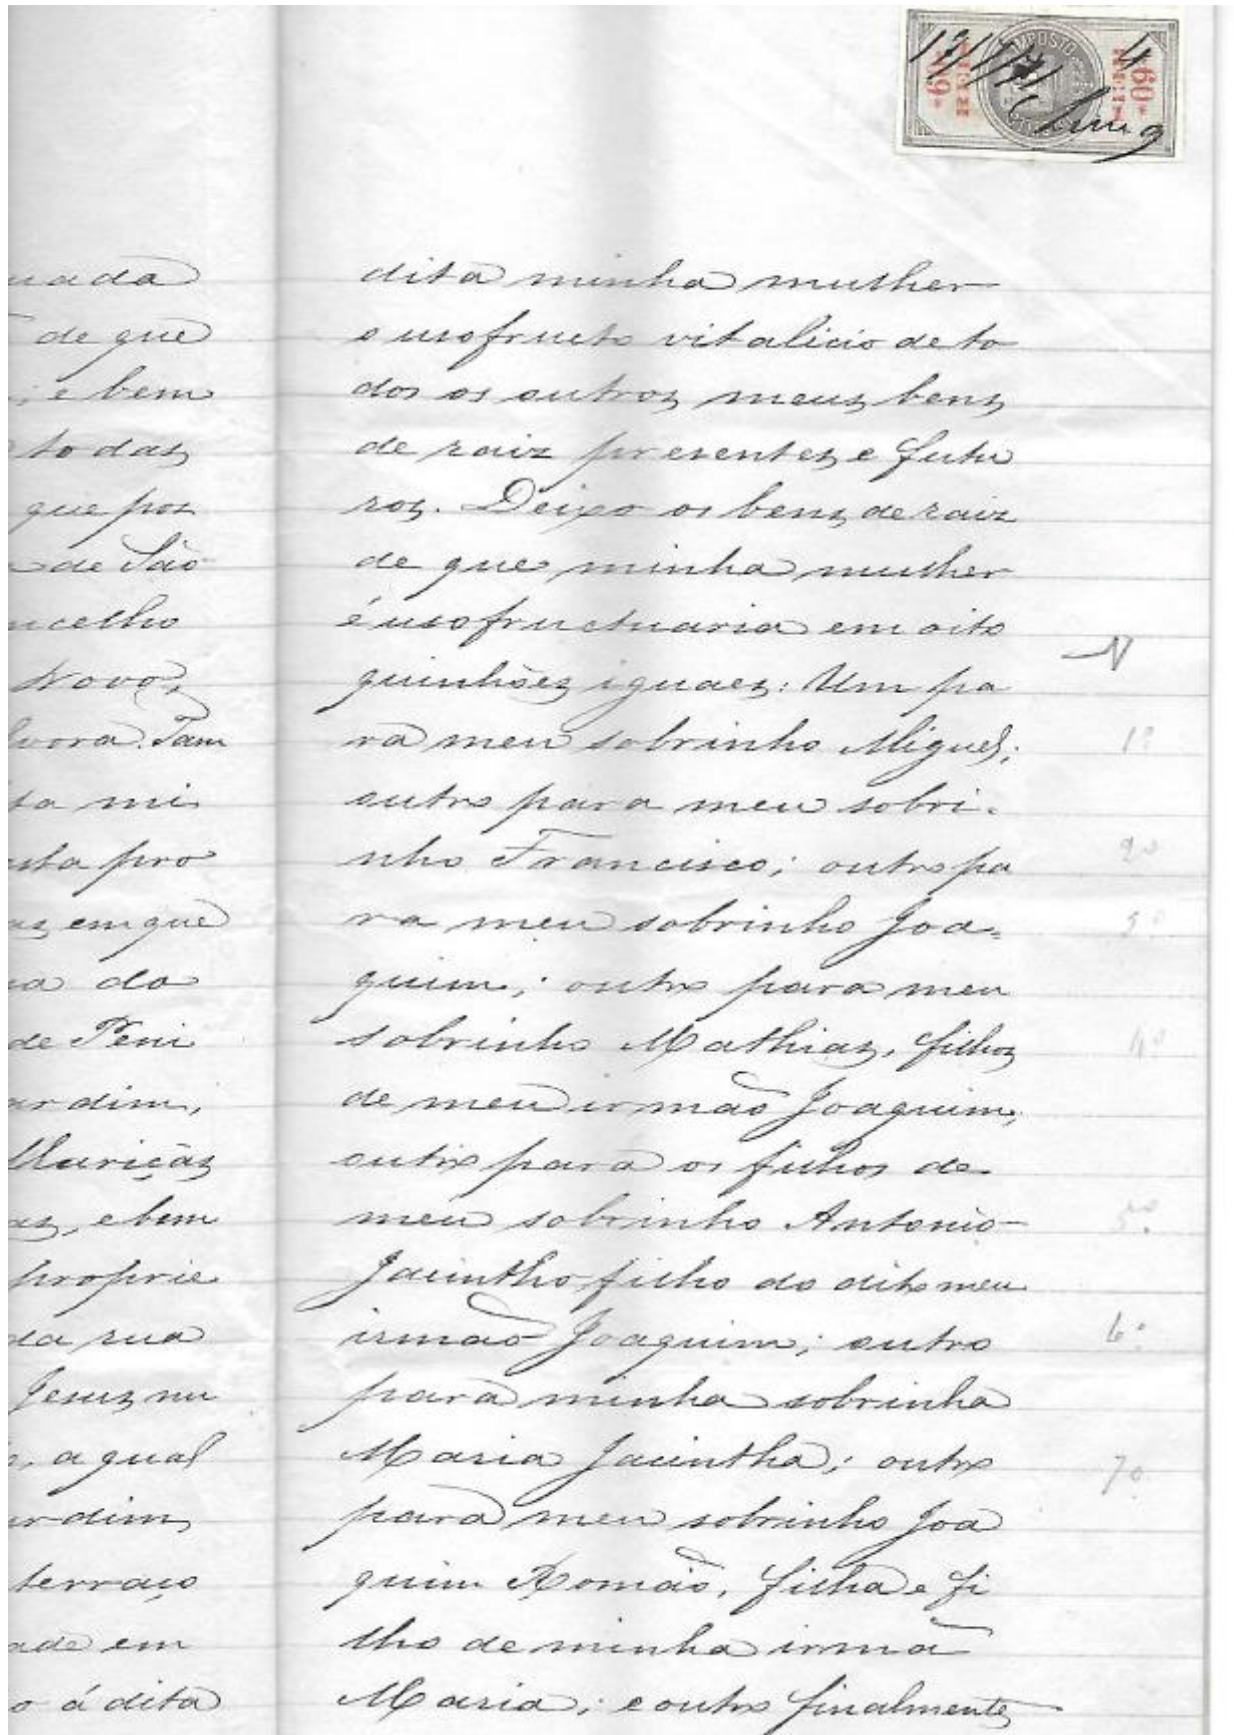 IMPOSTO
60 REIS
60 REIS
uada
de que
; e bem
todas
que pos
de São
ncelho
Novo,
vora. Tam
ta mi
sta pro
as em que
a do
de Peni
ardim,
Mariças
as, e bem
proprie
da rua
Jesus nu
a qual
ardim,
terraço
ade em
o á dita
dita minha mulher
o usofructo vitalicio de to
dos os outros meus bens
de raiz presentes e futu
ros. Deixo os bens de raiz
de que minha mulher
é usofructuaria em oito
quinhões iguaes: Um pa
ra meu sobrinho Miguel;
outro para meu sobri-
nho Francisco; outro pa
ra meu sobrinho Joa=
quim; outro para meu
sobrinho Mathias, filhos
de meu irmão Joaquim;
outro para os filhos de
meu sobrinho Antonio
Jacintho filho do dito meu
irmão Joaquim; outro
para minha sobrinha
Maria Jacintha; outro
para meu sobrinho Joa
quim Romão, filha e fi
lho de minha irmã
Maria; e outro finalmente
N
1º
2º
3º
4º
5º
6º
7º